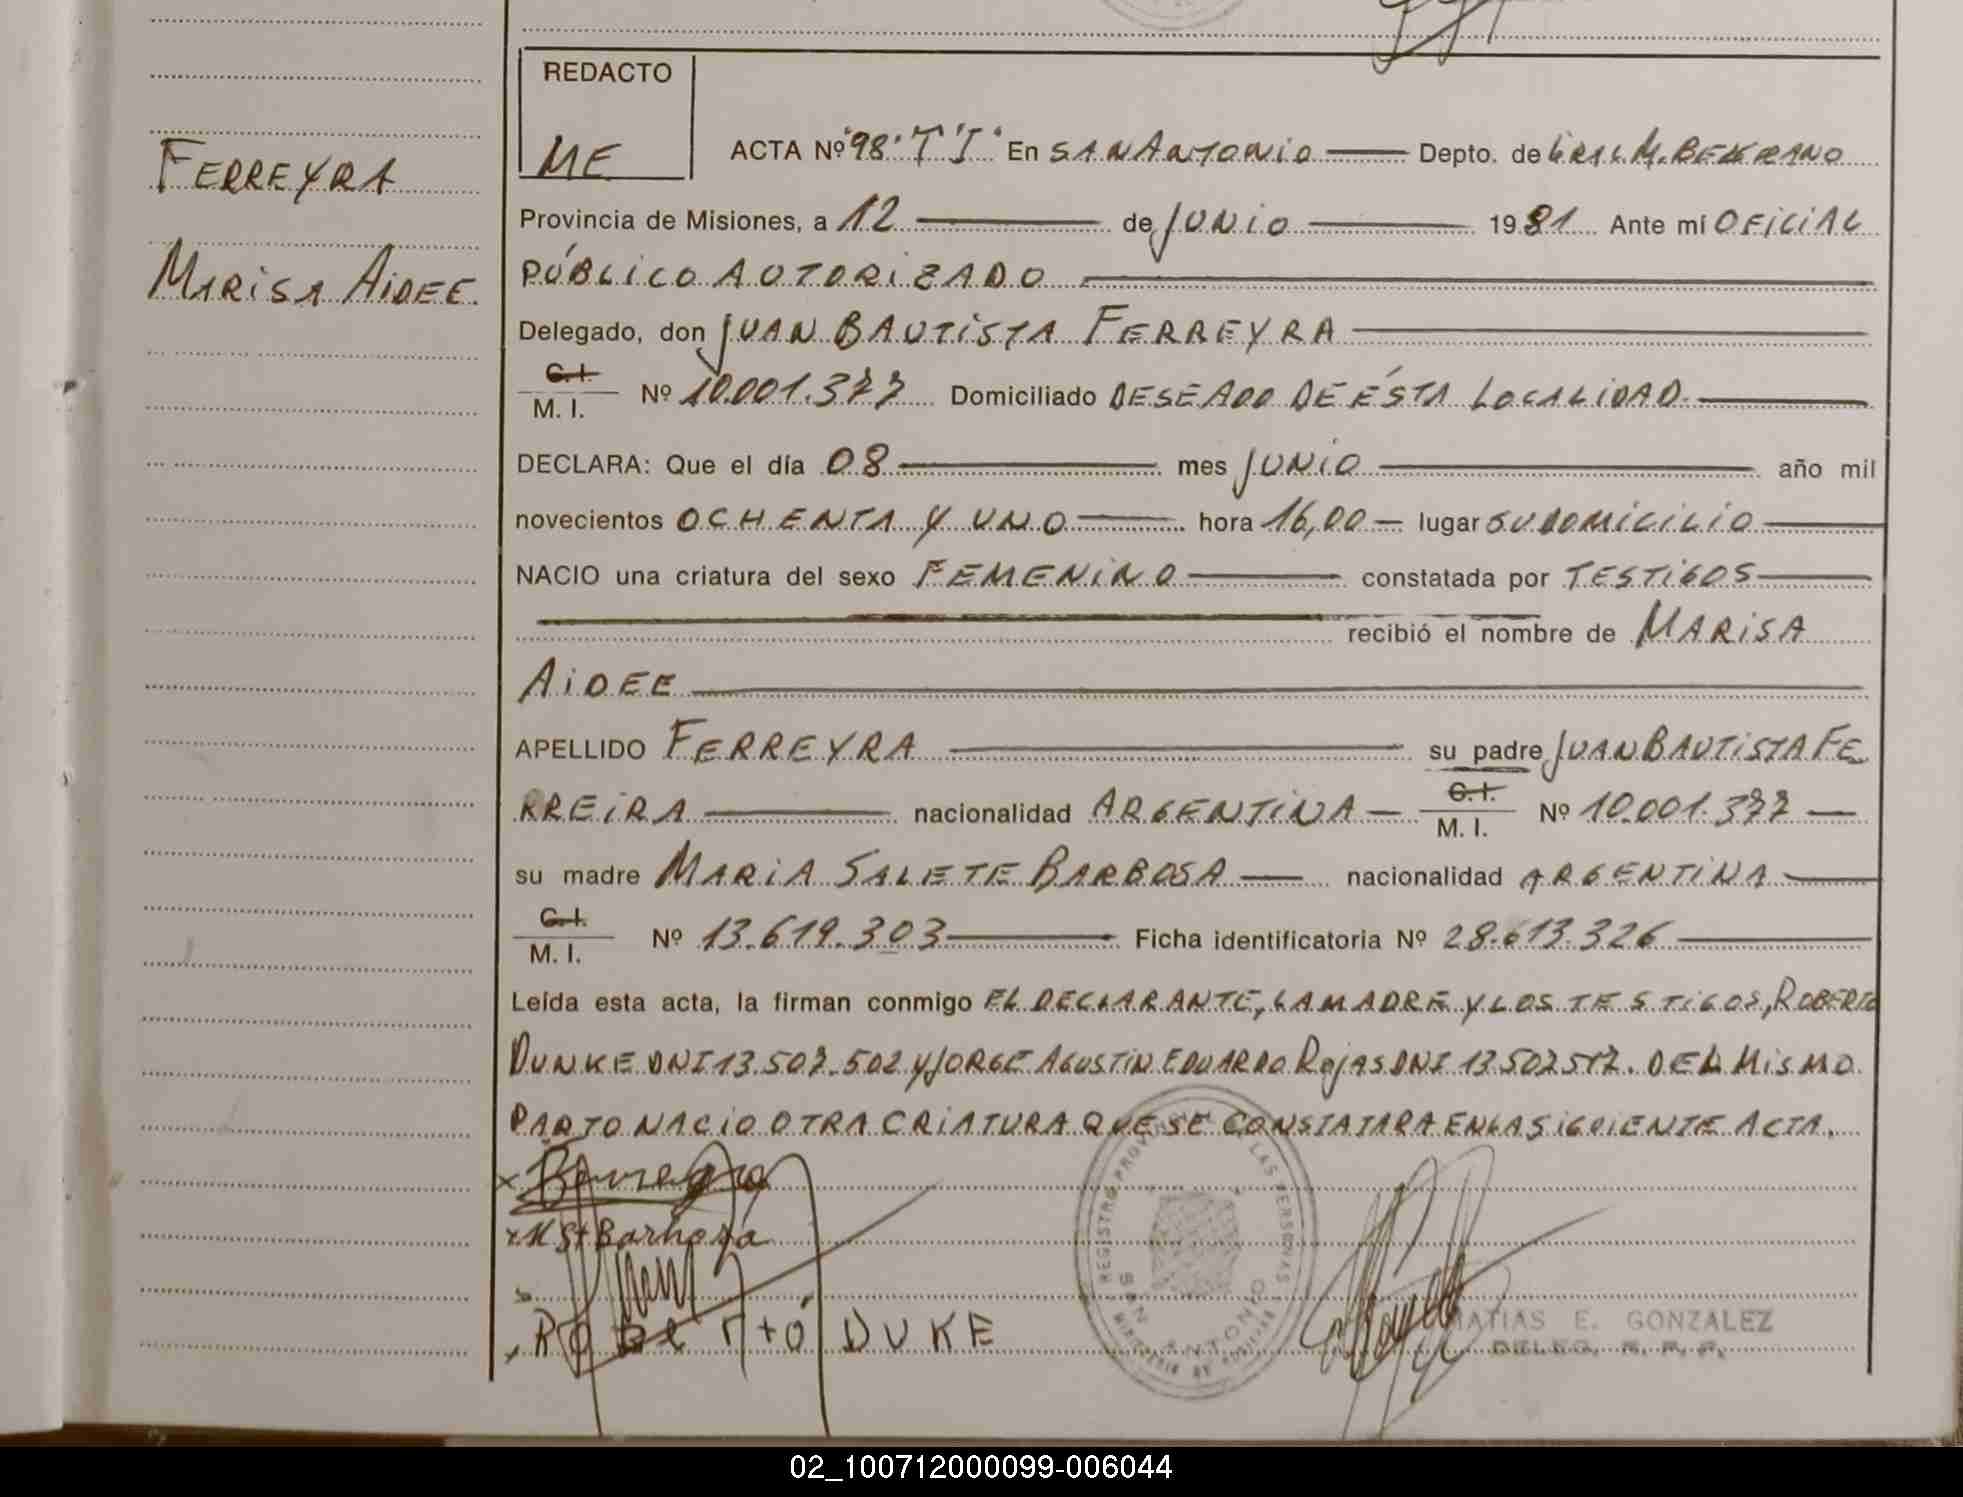 REDACTO
ME
FERREYRA
MARISA AIDEE.
ACTA Nº "98" "T I" En SAN ANTONIO Depto. de GRAL M. BELGRANO
Provincia de Misiones, a 12 de JUNIO 1981 Ante mí OFICIAL
PÚBLICO AUTORIZADO
Delegado, don JUAN BAUTISTA FERREYRA
C. I.
M. I. Nº 10.001.377 Domiciliado DESEADO DE ÉSTA LOCALIDAD.
DECLARA: Que el día 08 mes JUNIO año mil
novecientos OCHENTA Y UNO hora 16,00 lugar SU DOMICILIO
NACIO una criatura del sexo FEMENINO constatada por TESTIGOS
recibió el nombre de MARISA
AIDEE
APELLIDO FERREYRA su padre JUAN BAUTISTA FE
RREIRA nacionalidad ARGENTINA C. I.
M. I. Nº 10.001.377
su madre MARIA SALETE BARBOSA nacionalidad ARGENTINA
C. I.
M. I. Nº 13.619.303 Ficha identificatoria Nº 28.613.326
Leída esta acta, la firman conmigo EL DECLARANTE, LA MADRE Y LOS TESTIGOS, ROBERTO
DUNKE DNI 13.507.502 Y JORGE AGUSTIN EDUARDO ROJAS DNI 13.507.517. DEL MISMO
PARTO NACIO OTRA CRIATURA QUE SE CONSTATARA EN LA SIGUIENTE ACTA.
Barhoza
DUKE
REGISTRO LAS PERSONAS
SAN ANTONIO
MATIAS E. GONZALEZ
DELEG. R. P. P.
02_100712000099-006044